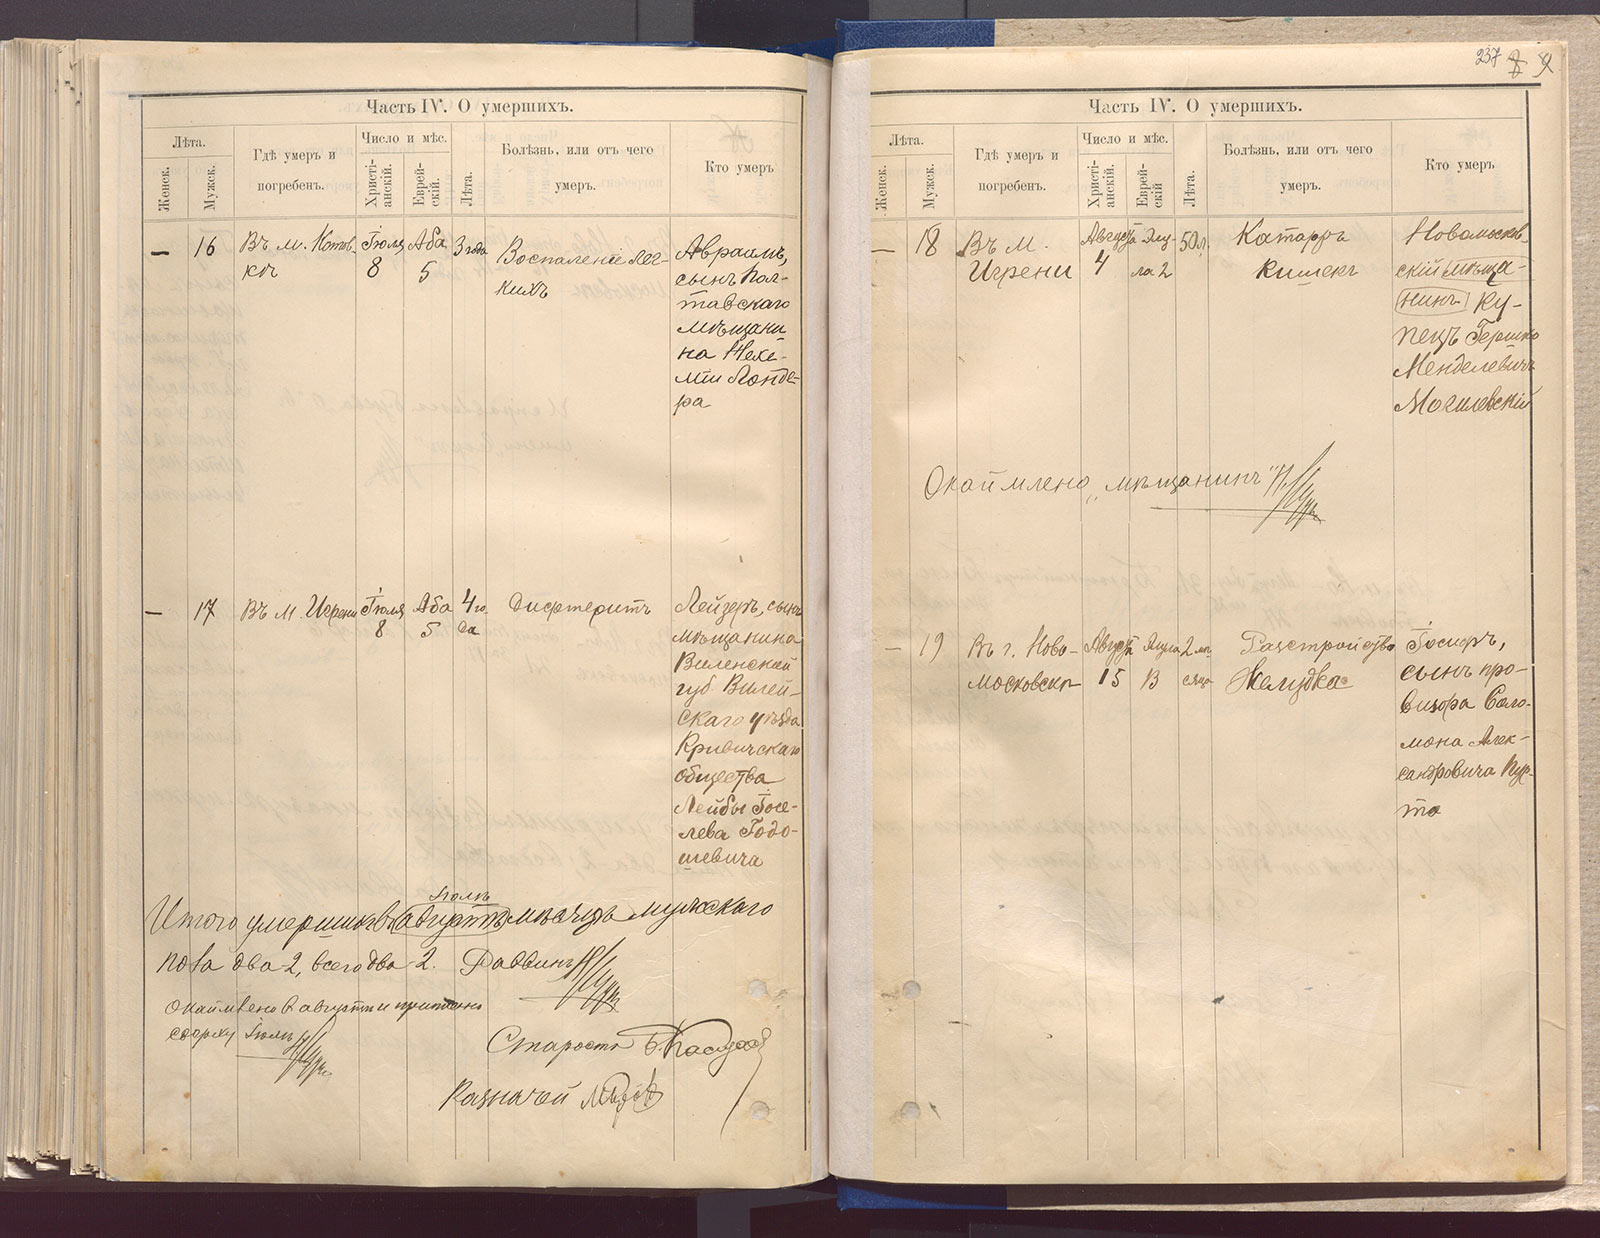 Часть IV. О умершихъ.
Лѣта.
Женск.
Мужск.
Гдѣ умеръ и
погребенъ.
Число и мѣс.
Христі-
анскій.
Еврей-
скій.
Лѣта.
Болѣзнь, или отъ чего
умеръ.
Кто умеръ
— 16
Въ м. Котов-
кѣ
Іюля
8
Аба
5
3 года
Воспаленіе лег-
кихъ
Авраамъ,
сынъ Пол-
тавскаго
мѣщани
на Нехе-
міи Лонде-
ра
— 17
Въ м. Игрени
Іюля
8
Аба
5
4 го
да
Дифтеритъ
Лейзеръ, сынъ
мѣщанина
Виленской
губ Вилей-
скаго уѣзда
Кривичскаго
общества
Лейбы Іосе-
лева Годо-
шевича
Іюлѣ
Итого умершихъ в августѣ мѣсяцѣ мужского
пола два-2, всего два-2. Раввинъ
Окаймлено в августѣ и приписано
сверху Іюлѣ
Староста
Казначей
237 8 9
Часть IV. О умершихъ.
Лѣта.
Женск.
Мужск.
Гдѣ умеръ и
погребенъ.
Число и мѣс.
Христі-
анскій.
Еврей-
скій
Лѣта.
Болѣзнь, или отъ чего
умеръ.
Кто умеръ
— 18
Въ м.
Игрени
Августа
4
Элу-
ла 2
50 л.
Катарръ
кишекъ
Новомосков-
скій мѣща-
нинъ ку-
пецъ Гершко
Менделевичъ
Могилевскій
Окаймлено „мѣщанинъ"
— 19
Въ г. Ново-
московскѣ
Августа
15
Элула
13
2 мѣ-
сяца
Разстройство
желудка
Іосифъ,
сынъ про-
визора Соло-
мона Алек-
сандровича Пур-
то